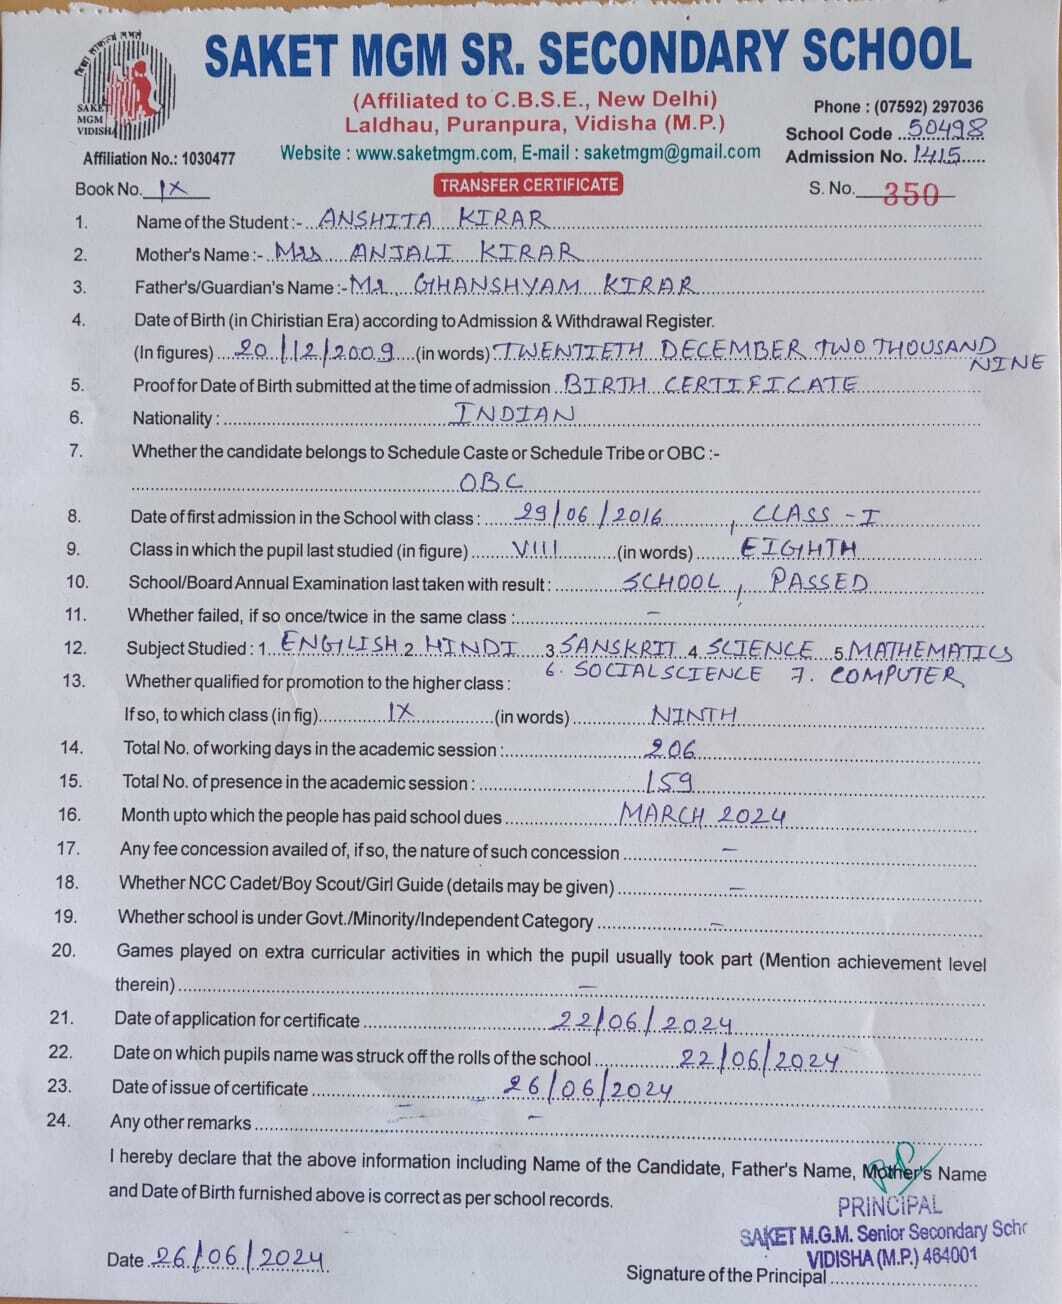 SAKET MGM SR. SECONDARY SCHOOL
(Affiliated to C.B.S.E., New Delhi)
Laldhau, Puranpura, Vidisha (M.P.)
SAKET
MGM
VIDISHA
Phone : (07592) 297036
School Code ..50498
Affiliation No.: 1030477
Website : www.saketmgm.com, E-mail : saketmgm@gmail.com
Admission No. 1415.....
Book No. IX
TRANSFER CERTIFICATE
S. No. 350
1. Name of the Student :- ANSHITA KIRAR
2. Mother's Name :- Mrs ANJALI KIRAR
3. Father's/Guardian's Name :- Mr GHANSHYAM KIRAR
4. Date of Birth (in Chiristian Era) according to Admission & Withdrawal Register.
(In figures) 20/12/2009 (in words) TWENTIETH DECEMBER TWO THOUSAND
NINE
5. Proof for Date of Birth submitted at the time of admission BIRTH CERTIFICATE
6. Nationality : INDIAN
7. Whether the candidate belongs to Schedule Caste or Schedule Tribe or OBC :-
OBC
8. Date of first admission in the School with class : 29/06/2016, CLASS - I
9. Class in which the pupil last studied (in figure) VIII (in words) EIGHTH
10. School/Board Annual Examination last taken with result : SCHOOL, PASSED
11. Whether failed, if so once/twice in the same class : -
12. Subject Studied : 1. ENGLISH 2. HINDI 3. SANSKRIT 4. SCIENCE 5. MATHEMATICS
6. SOCIAL SCIENCE 7. COMPUTER
13. Whether qualified for promotion to the higher class :
If so, to which class (in fig) IX (in words) NINTH
14. Total No. of working days in the academic session : 206
15. Total No. of presence in the academic session : 159
16. Month upto which the people has paid school dues MARCH 2024
17. Any fee concession availed of, if so, the nature of such concession -
18. Whether NCC Cadet/Boy Scout/Girl Guide (details may be given) -
19. Whether school is under Govt./Minority/Independent Category -
20. Games played on extra curricular activities in which the pupil usually took part (Mention achievement level
therein) -
21. Date of application for certificate 22/06/2024
22. Date on which pupils name was struck off the rolls of the school 22/06/2024
23. Date of issue of certificate 26/06/2024
24. Any other remarks -
I hereby declare that the above information including Name of the Candidate, Father's Name, Mother's Name
and Date of Birth furnished above is correct as per school records.
PRINCIPAL
SAKET M.G.M. Senior Secondary Scho
VIDISHA (M.P.) 464001
Date 26/06/2024
Signature of the Principal